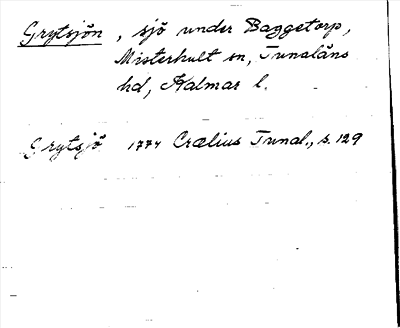 Grytsjön, sjö under Baggetorp,
Misterhult sn, Tunaläns
hd, Kalmar l.
Grytsjö 1774 Crælius Tunal., s. 129